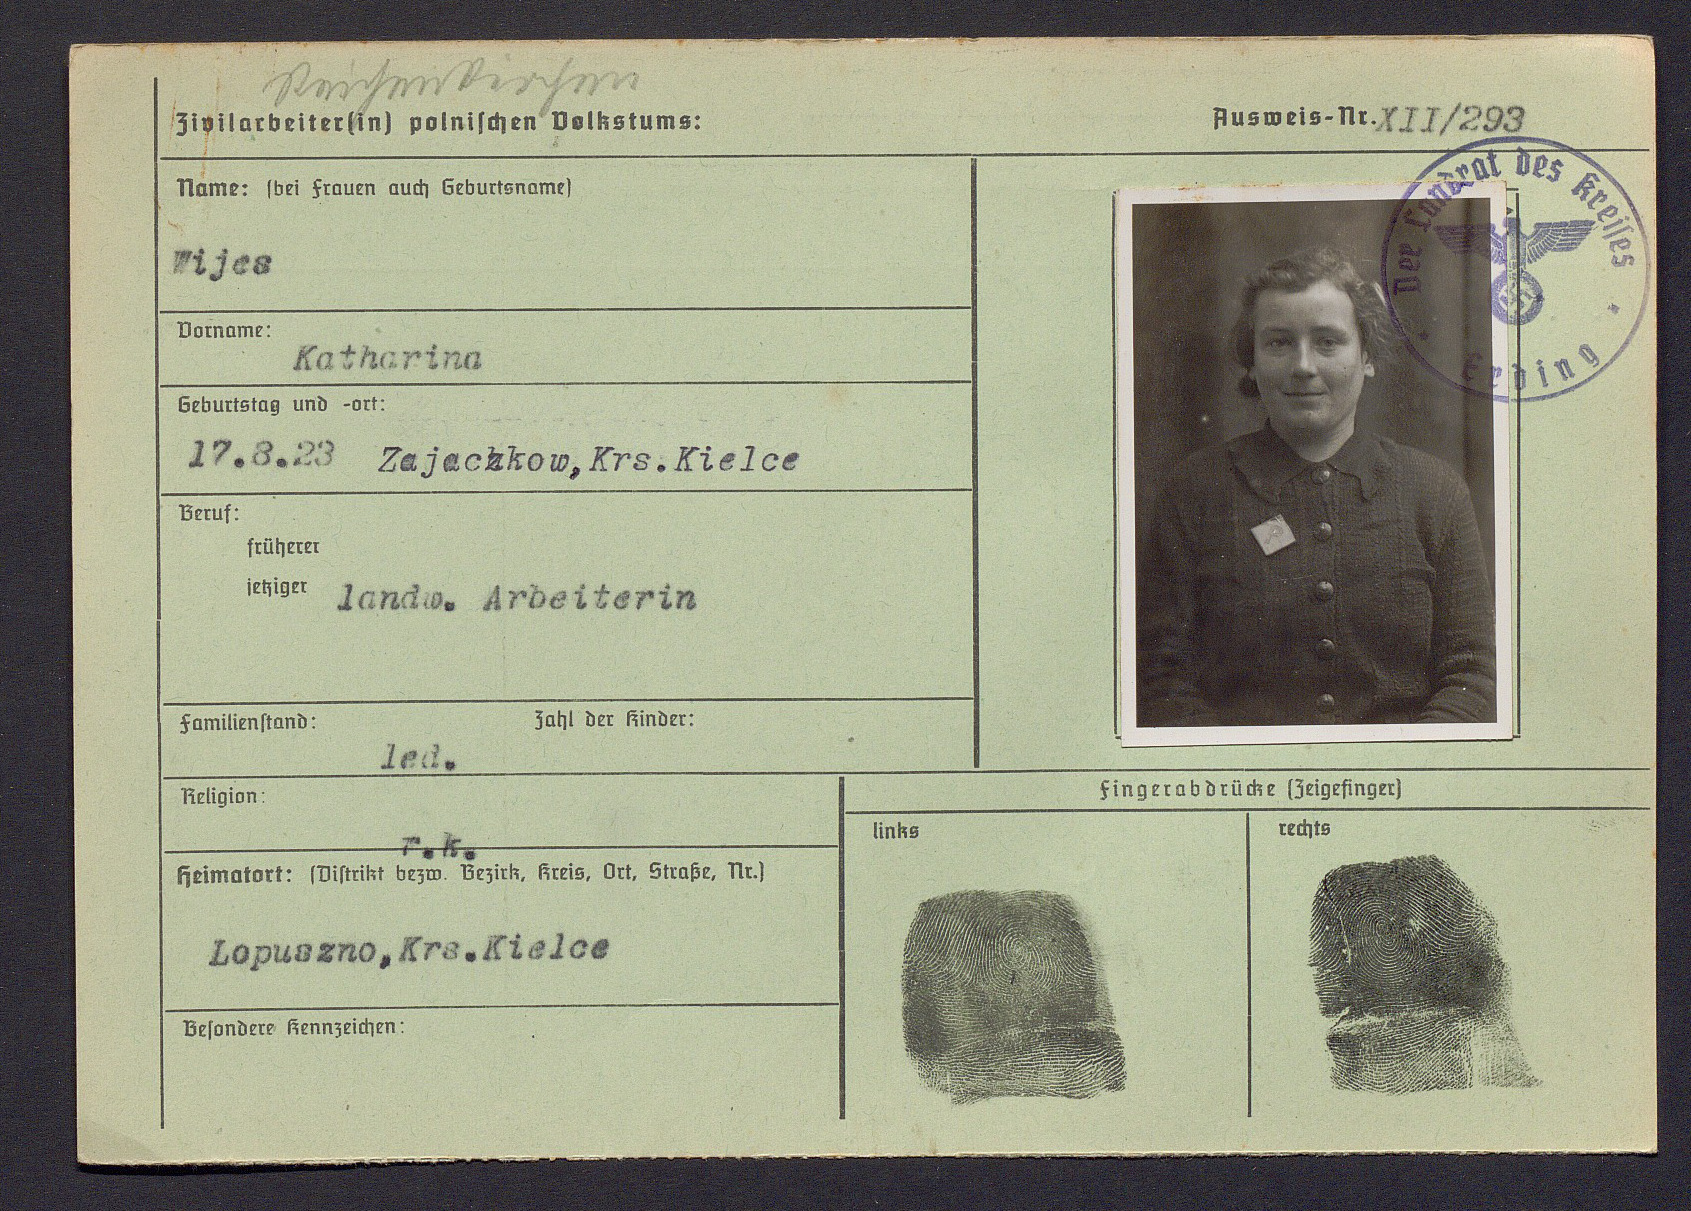 Reichenkirchen
Zivilarbeiter(in) polnischen Volkstums:
Ausweis-Nr. XII/293
Name: (bei Frauen auch Geburtsname)
Wijes
Vorname:
Katharina
Geburtstag und -ort:
17.8.23 Zajaczkow, Krs. Kielce
Beruf:
früherer
jetziger landw. Arbeiterin
Familienstand: Zahl der Kinder:
led.
Religion:
r.k.
Heimatort: (Distrikt bezw. Bezirk, Kreis, Ort, Straße, Nr.)
Lopuszno, Krs. Kielce
Besondere Kennzeichen:
Der Landrat des Kreises
Erding
Fingerabdrücke (Zeigefinger)
links
rechts